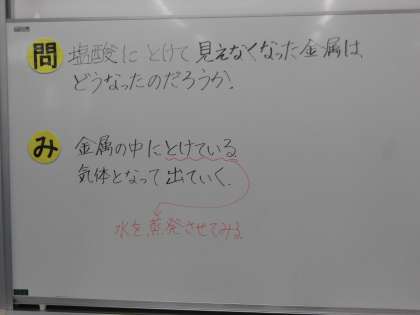 問 塩酸にとけて見えなくなった金属は、
どうなったのだろうか。
み 金属の中にとけている
気体となって出ていく。
水を蒸発させてみる